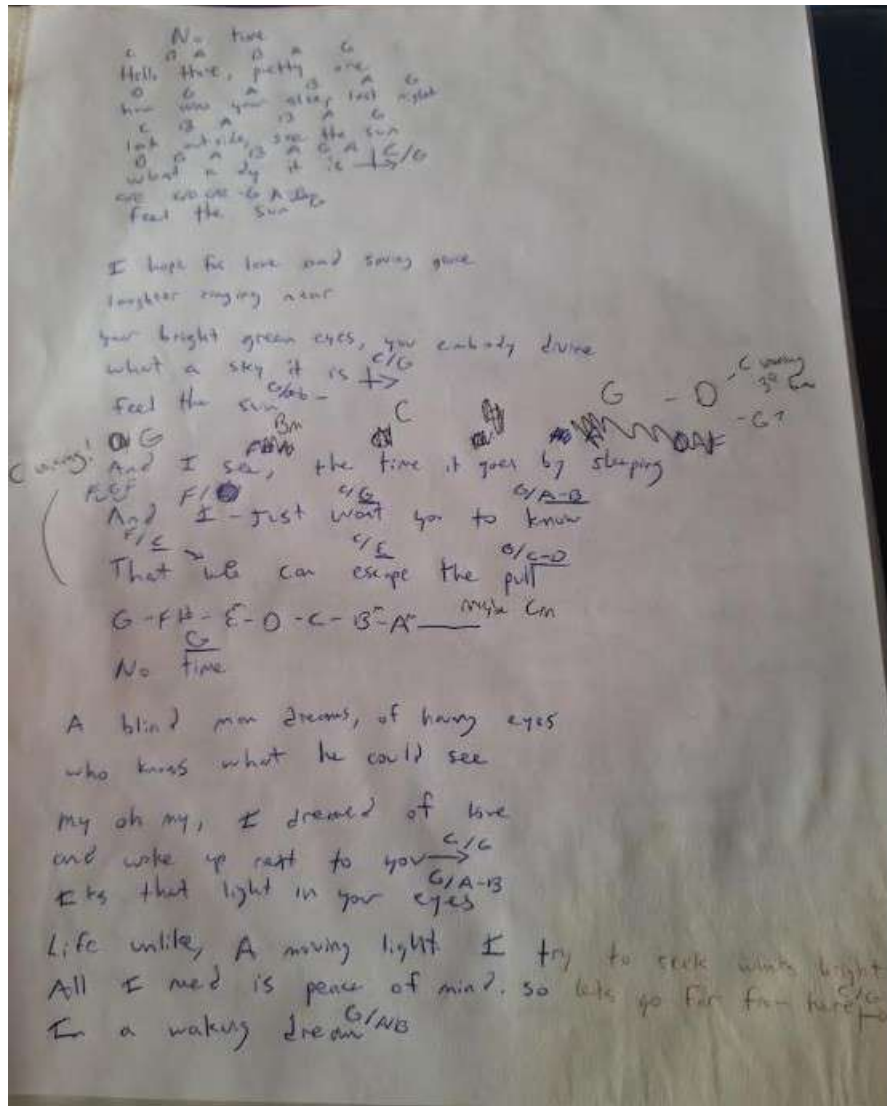 No time
C B A B A G
Hello there, pretty one
D G A B A G
how was your sleep last night
C B A B A G
look outside, see the sun
D G A B A G A C/G
what a dy it is
Feel the sun
I hope for love and saving grace
laughter ringing near
your bright green eyes, you embody divine
what a sky it is C/G
Feel the sun
G - D
- G?
G Bm C
C
And I see, the time it goes by sleeping
F/ C/G G/A-B
And I - Just want you to know
F/C C/E G/C-D
That we can escape the pull
G - F# - Em - D - C - Bm - Am maybe Cm
G
No time
A blind man dreams, of having eyes
who knows what he could see
My oh my, I dremed of love
and woke up next to you C/G
Its that light in your eyes G/A-B
Life unlike, A moving light I try to seek whats bright
All I need is peace of mind. So lets go far from here C/G
In a waking dream G/AB